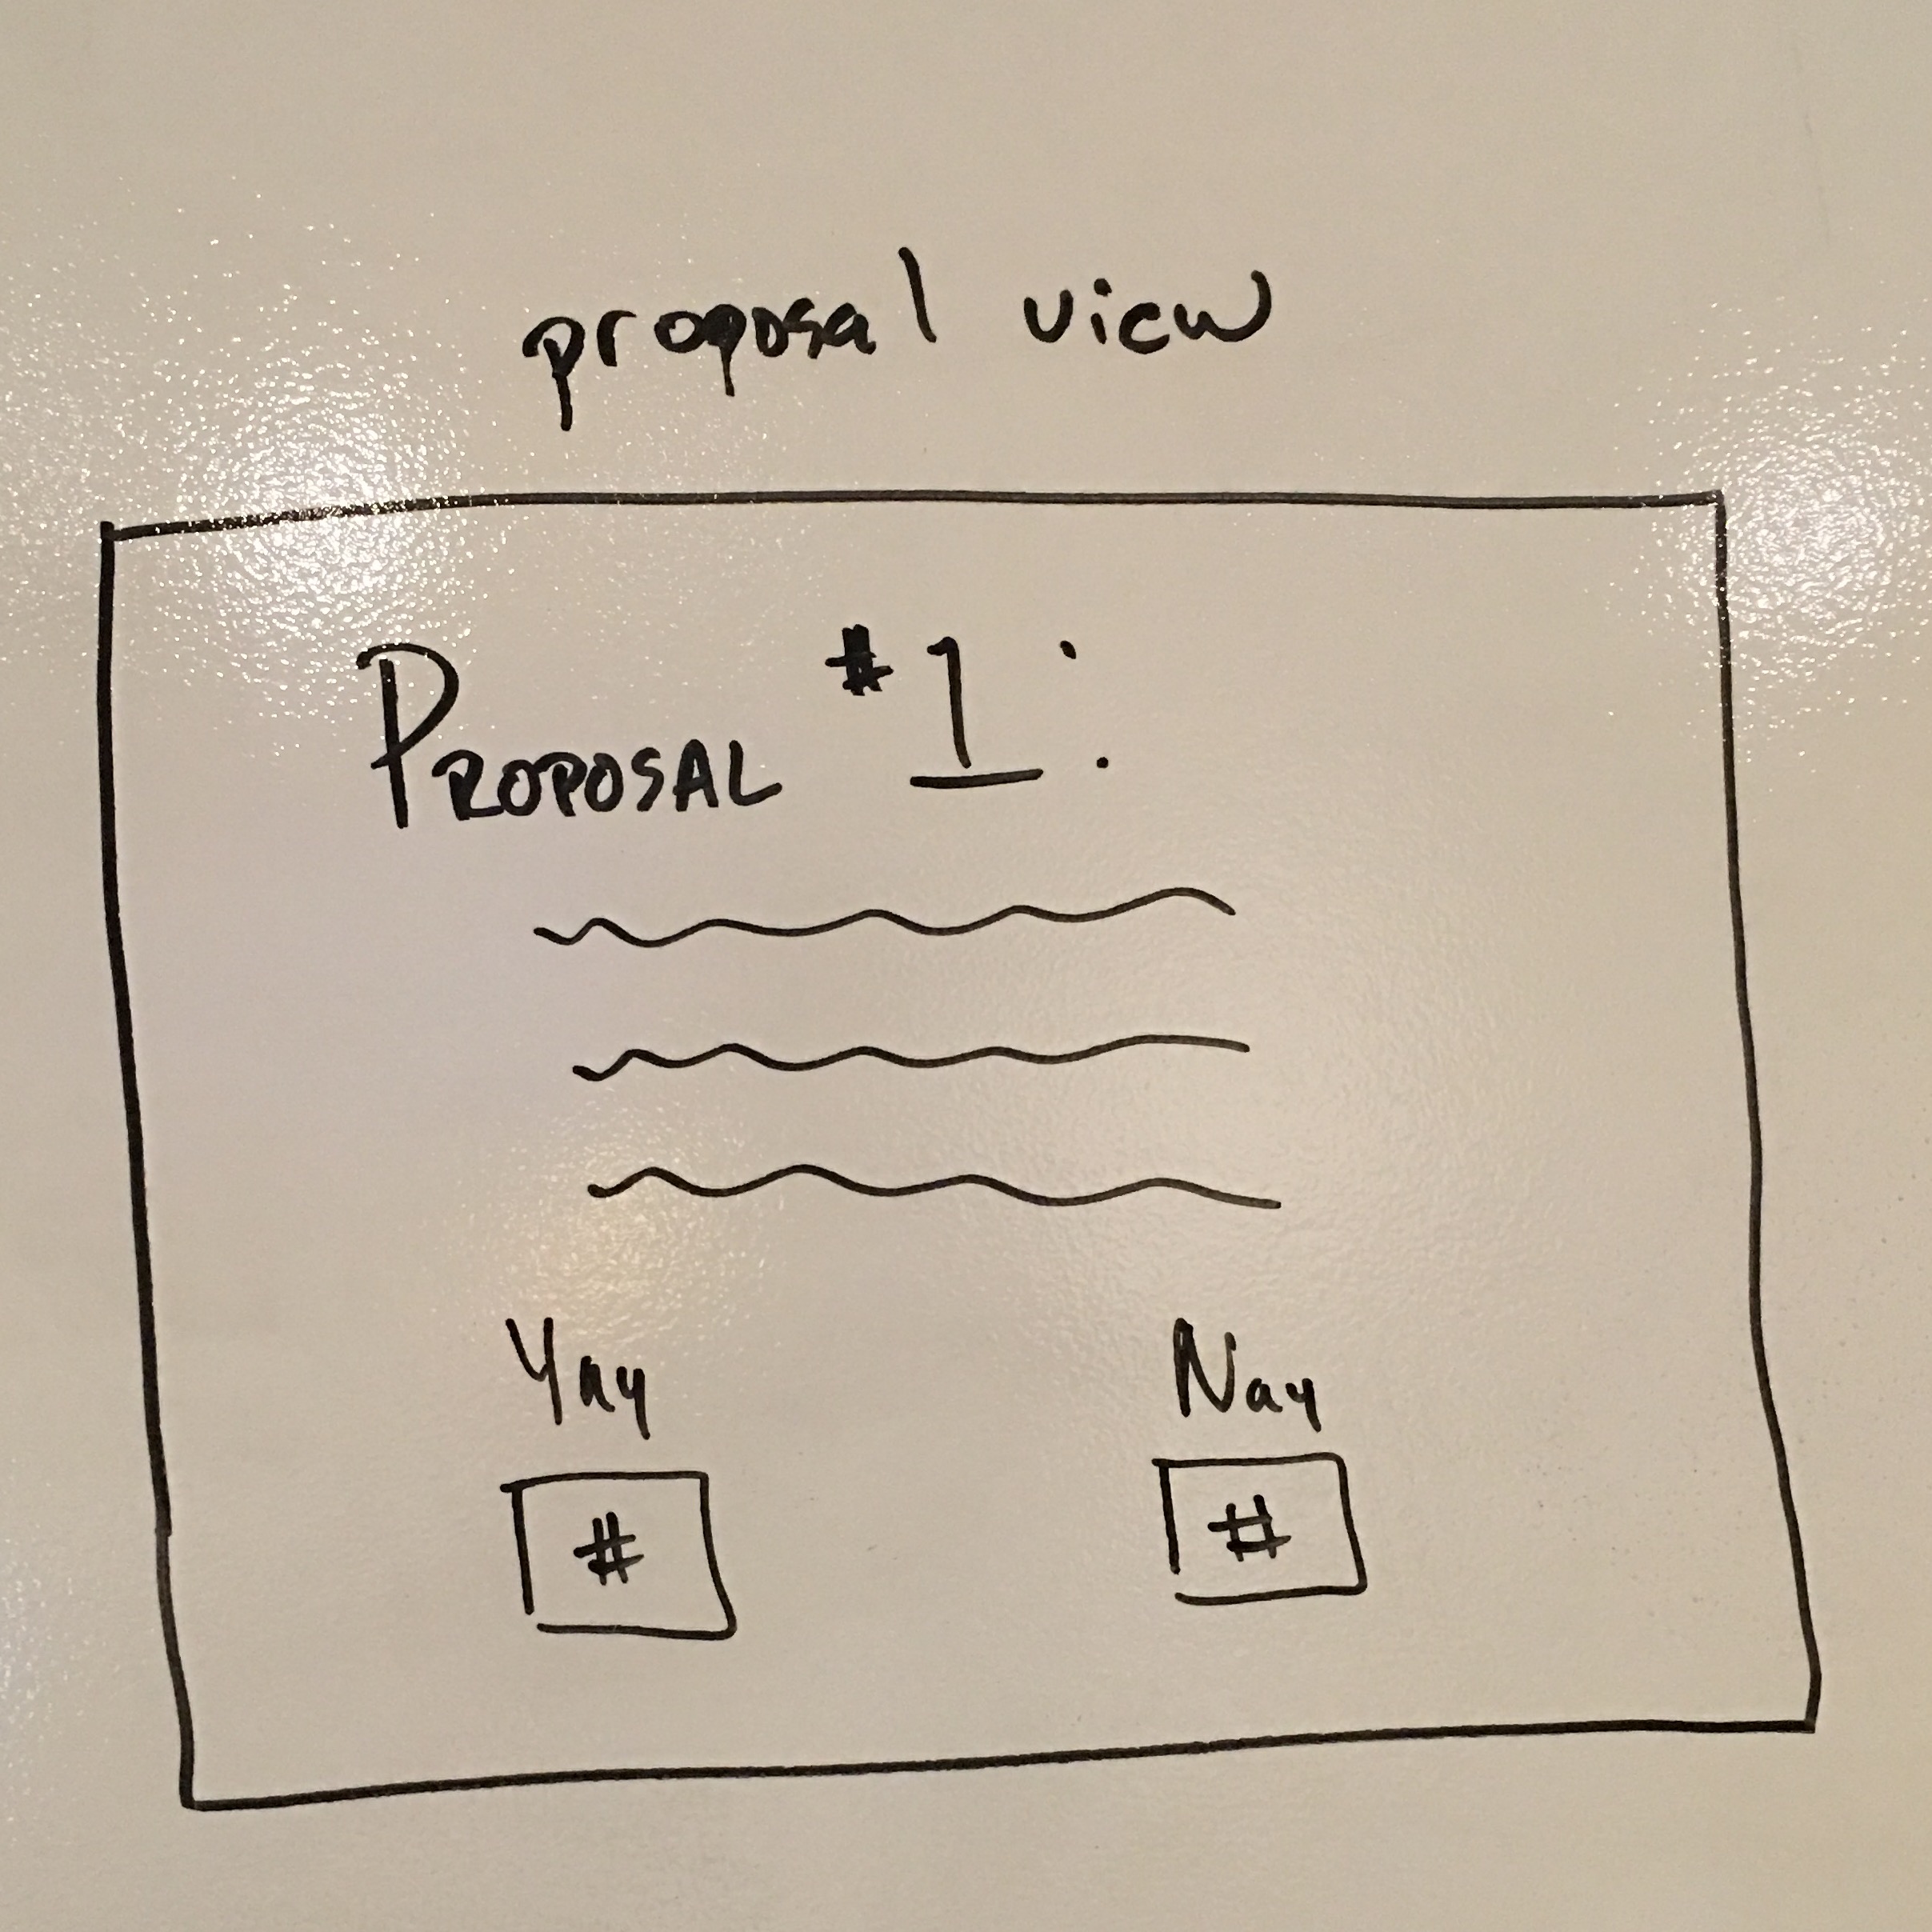 proposal view
PROPOSAL #1:
Yay Nay
# #